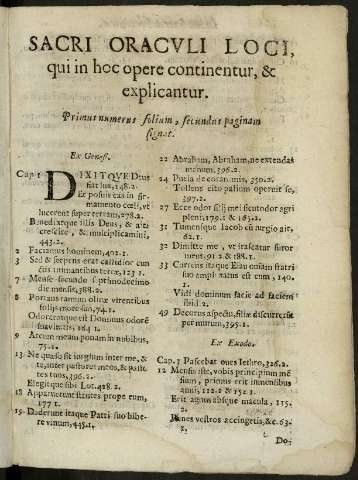 SACRI ORACVLI LOCI,
qui in hoc opere continentur, &
explicantur.
Primus numerus folium, secundus paginam
signat.
Ex Genesi.
Cap 1 DIXITQVE Deus
fiat lux, 148.2.
Et posuit eas in fir-
mamento cœli, vt
lucerent super terram, 278.2.
Benedixitque illis Deus, & ait:
crescite, & multiplicamini,
443.2.
2 Faciamus hominem, 402.1.
3 Sed & serpens erat callidior cun
ctis animantibus terræ, 123 1.
7 Mense secundo septimodecimo
die mensis, 388.2.
8 Portans ramum oliuæ virentibus
folijs
Odoratusque est Dominus odorē
suauitatis, 164 1.
9 Arcum meam ponam in nubibus,
75.1.
13 Ne quæso sit iurgium inter me, &
te, inter pastores meos, & pasto
res tuos, 396.2.
Elegitque sibi Lot. 428.2.
18 Apparuerunt stantes prope eum,
177 1.
19 Dederunt itaque Patri suo bibe
re vinum, 445.1.
22 Abraham, Abraham, ne extendas
manum, 396.2.
24 Puella decora nimis, 350.2.
Tollens cito pallium operuit se,
397.2.
27 Ecce odor filij mei sicut odor agri
pleni, 179.1 & 163.2.
31 Tumensque Iacob cū iurgio ait,
62 1.
32 Dimitte me, vt irascatur furor
meus, 91 2 & 188.1.
33 Currens itaque Esau obuiam fratri
suo amplexatus est eum, 140.
1.
Vidi dominum facie ad faciem
ibid 2.
49 Decorus aspectu, filiæ discurrerūt
per murum, 395.1.
Ex Exodo.
Cap. 3 Pascebat oues Iethro, 326.2.
12 Mensis iste, vobis principium mē
sium, primus erit in mensibus
anni, 112.2 & 151 1.
Erit agnus absque macula, 115.
2.
Renes vestros accingetis, & c. 63.
1.
Do-